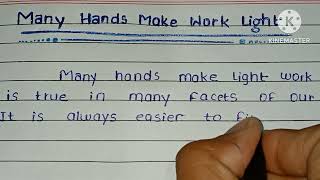 Many Hands Make Work Light
KINEMASTER
Many hands make light work
is true in many facets of our
It is always easier to